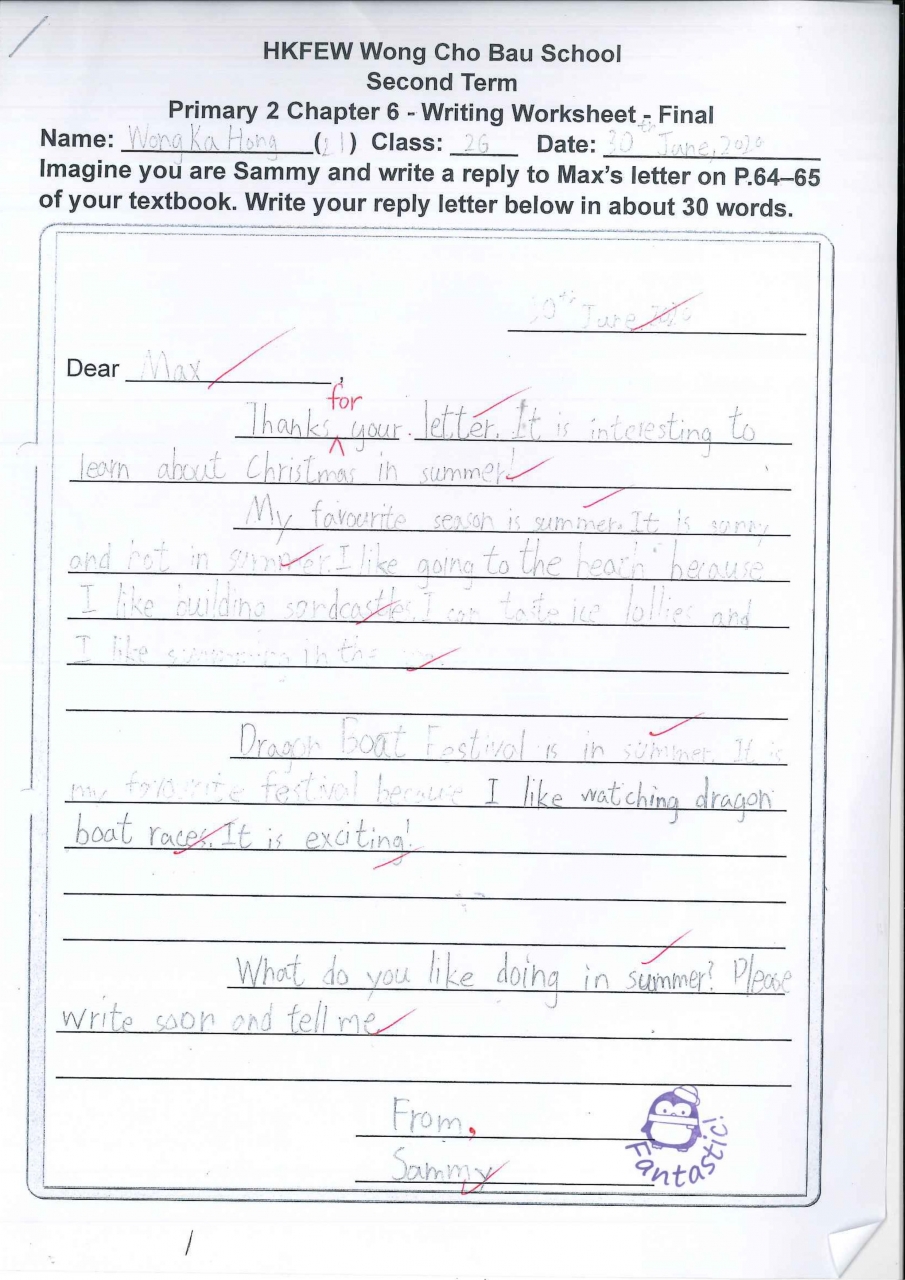 HKFEW Wong Cho Bau School
Second Term
Primary 2 Chapter 6 - Writing Worksheet - Final
Name: Wong Ka Hong (21) Class: 2G Date: 30th June, 2020
Imagine you are Sammy and write a reply to Max's letter on P.64–65
of your textbook. Write your reply letter below in about 30 words.
30th June
Dear Max,
for
Thanks your letter. It is interesting to
learn about Christmas in summer!
My favourite season is summer. It is sunny
and hot in summer. I like going to the beach because
I like building sandcastles. I can taste ice lollies and
I like swimming in the
Dragon Boat Festival is in summer. It is
my favourite festival because I like watching dragon
boat races. It is exciting!
What do you like doing in summer? Please
write soon and tell me
From,
Sammy
Fantastic!